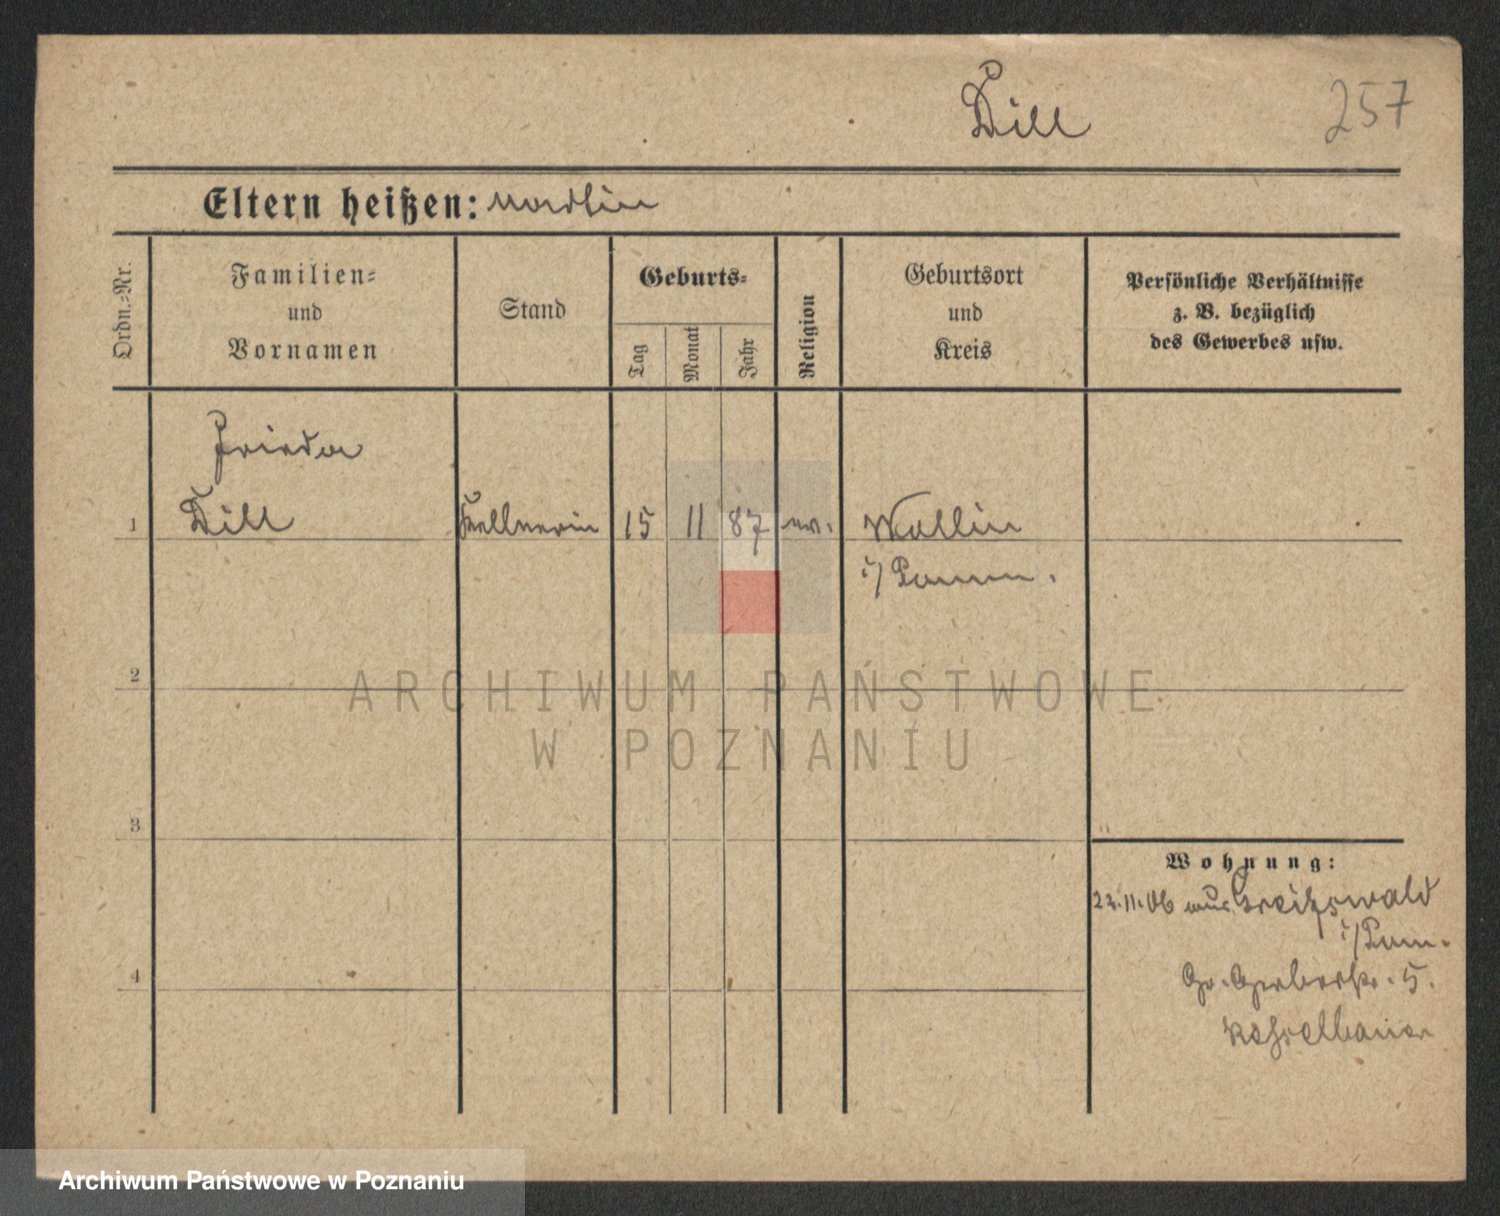 Dill 257
Eltern heißen:
Ordn.=Nr.
Familien=
und
Vornamen
Stand
Geburts=
Tag
Monat
Jahr
Religion
Geburtsort
und
Kreis
Persönliche Verhältnisse
z. B. bezüglich
des Gewerbes usw.
Frieda
1 Dill Kellnerin 15 11 87 ev. Wollin
i/ Pomm.
2
ARCHIWUM PAŃSTWOWE
W POZNANIU
3
Wohnung:
22.11.06 aus Greifswald
i/Pom.
4 Gr. Gerberstr. 5.
Archiwum Państwowe w Poznaniu